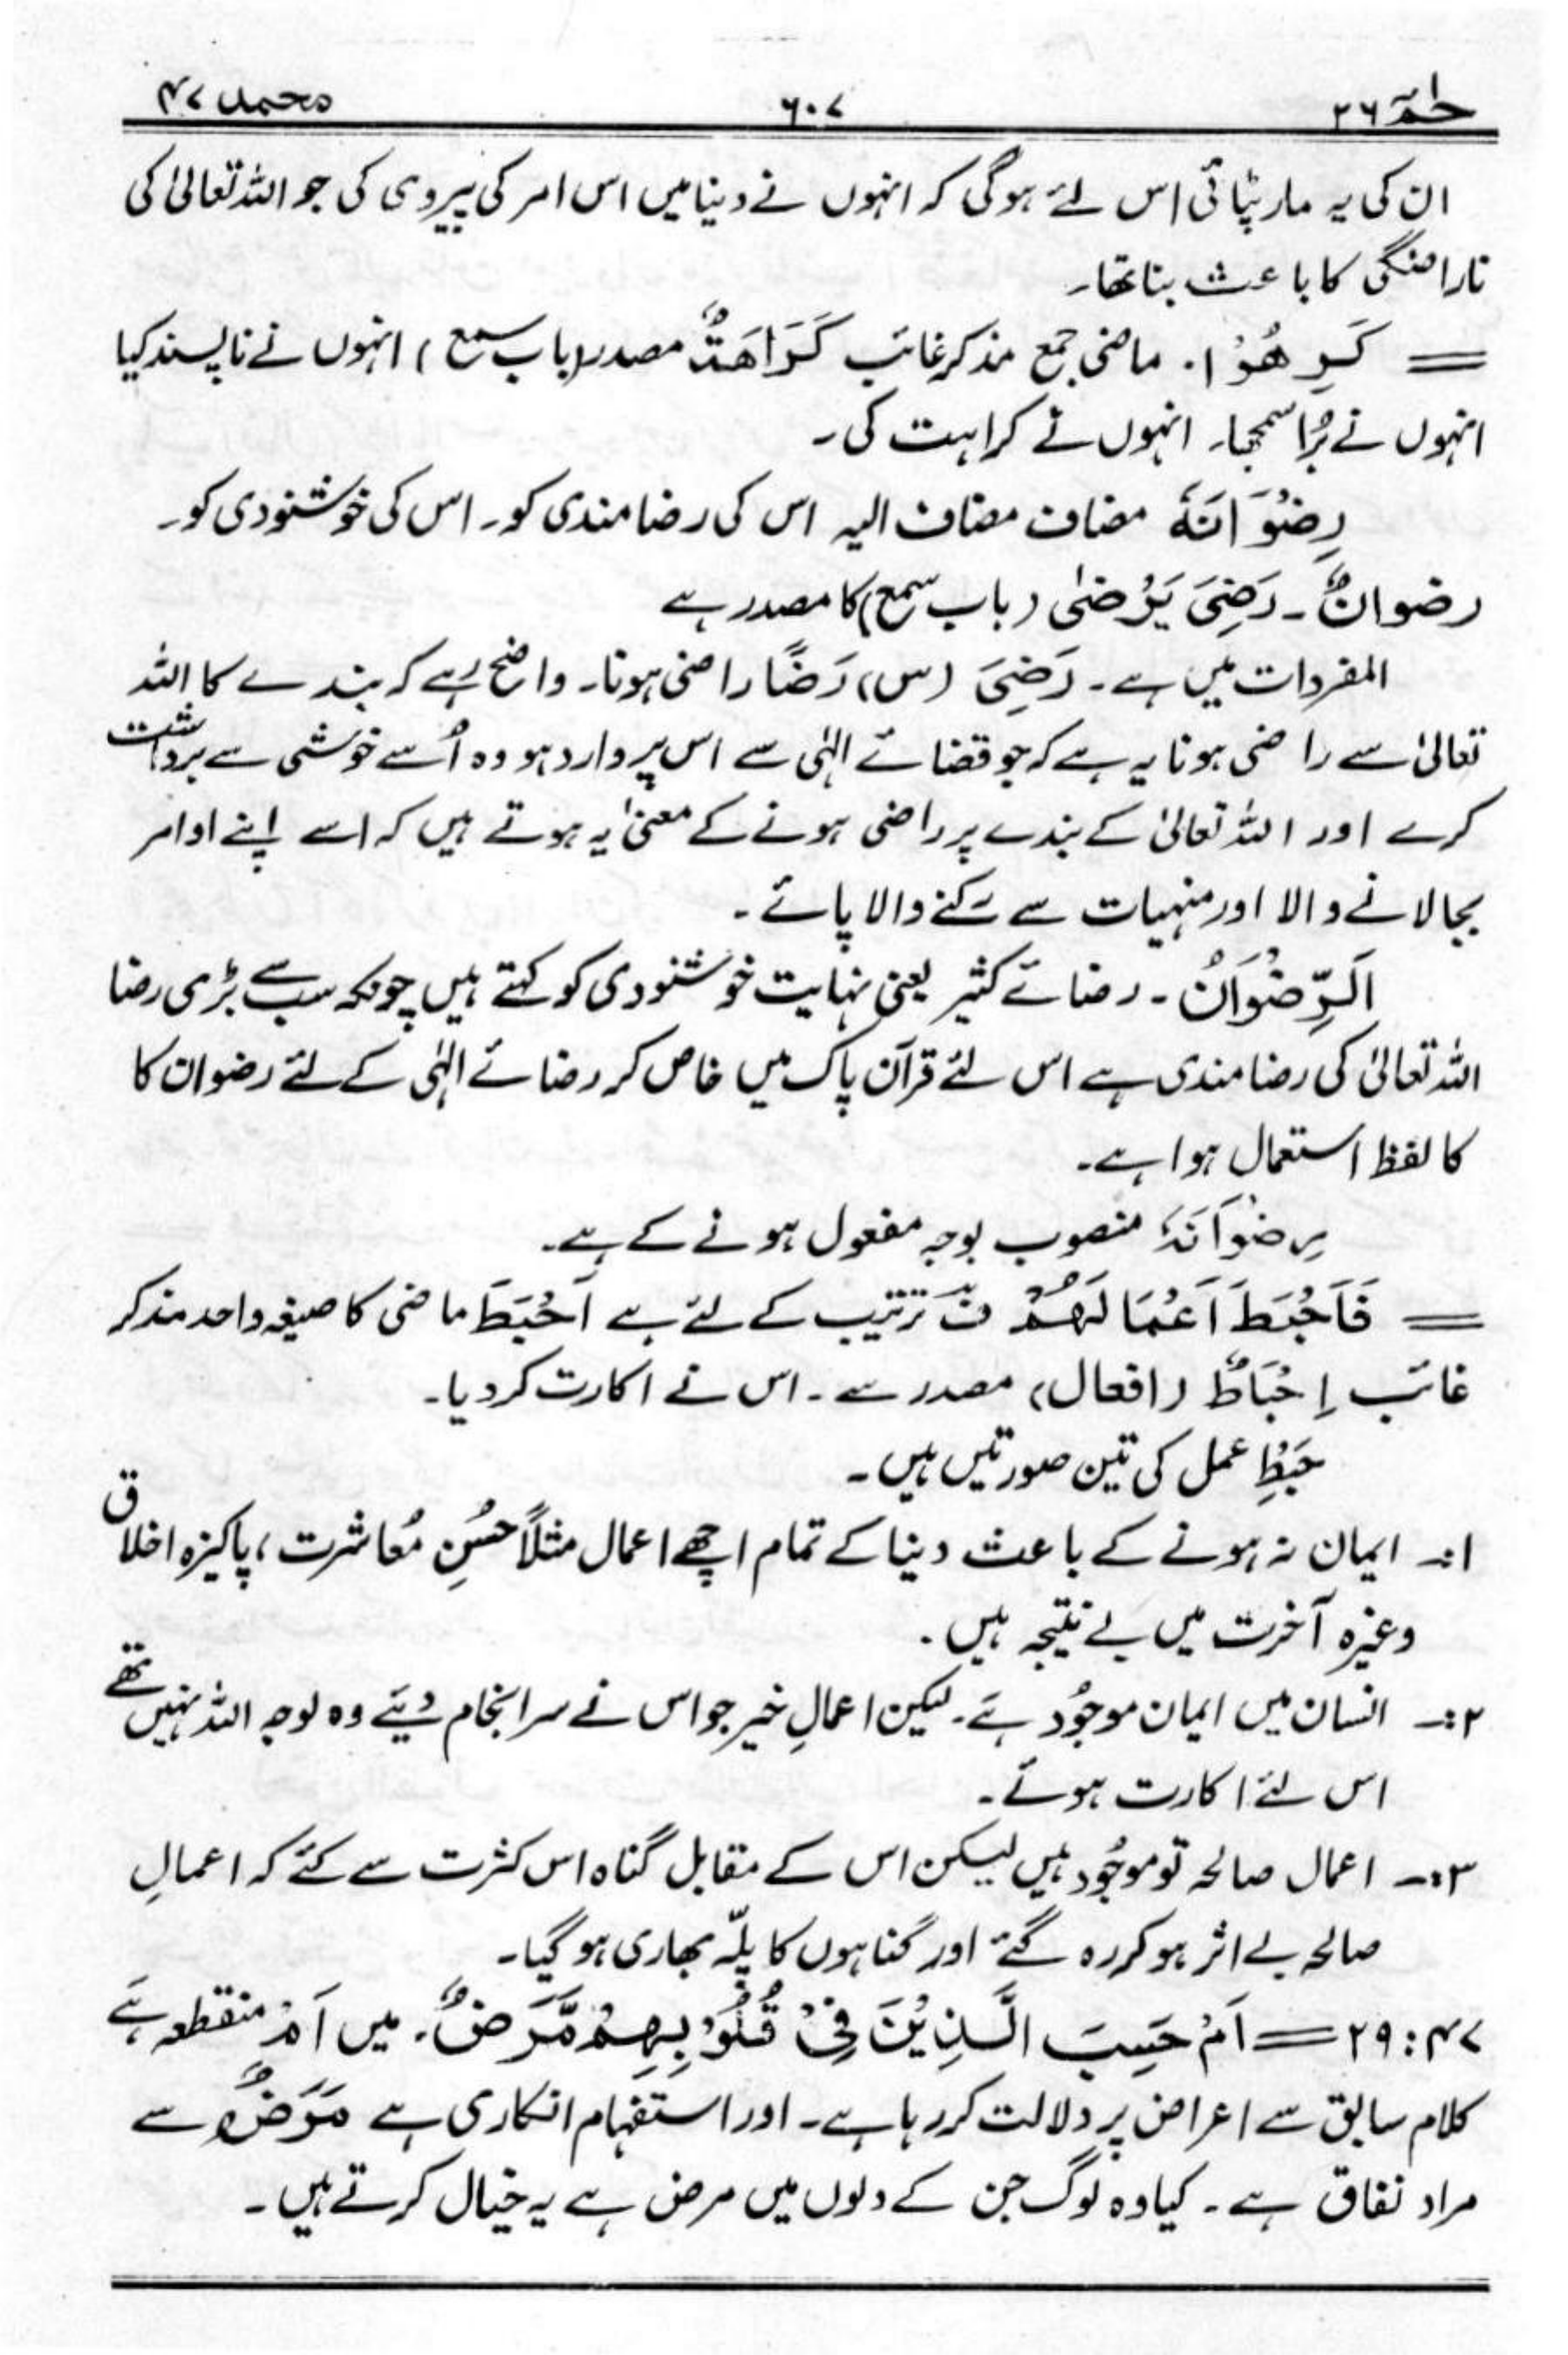 حٰمٓ ٢٦ ٦٠٧ محمد ٤٧
ان کی یہ مار پٹائی اس لئے ہوگی کہ انہوں نے دنیا میں اس امر کی پیروی کی جو اللہ تعالیٰ کی
ناراضگی کا باعث بنا تھا۔
= كَرِهُوْا. ماضی جمع مذکر غائب كَرَاهَةٌ مصدر (باب سمع) انہوں نے ناپسند کیا
انہوں نے بُرا سمجھا۔ انہوں نے کراہت کی۔
رِضْوَانَهٗ مضاف مضاف الیہ اس کی رضامندی کو۔ اس کی خوشنودی کو۔
رضوانٌ۔ رَضِیَ یَرْضٰی (باب سمع) کا مصدر ہے
المفردات میں ہے۔ رَضِیَ (س) رَضًا راضی ہونا۔ واضح رہے کہ بندے کا اللہ
تعالیٰ سے راضی ہونا یہ ہے کہ جو قضائے الٰہی سے اس پر وارد ہو وہ اُسے خوشی سے برداشت
کرے اور اللہ تعالیٰ کے بندے پر راضی ہونے کے معنیٰ یہ ہوتے ہیں کہ اسے اپنے اوامر
بجا لانے والا اور منہیات سے رُکنے والا پائے۔
اَلرِّضْوَانُ۔ رضائے کثیر یعنی نہایت خوشنودی کو کہتے ہیں چونکہ سب سے بڑی رضا
اللہ تعالیٰ کی رضامندی ہے اس لئے قرآن پاک میں خاص کر رضائے الٰہی کے لئے رضوان کا
کا لفظ استعمال ہوا ہے۔
رِضْوَانَهٗ منصوب بوجہ مفعول ہونے کے ہے۔
= فَاَحْبَطَ اَعْمَالَهُمْ فَ ترتیب کے لئے ہے اَحْبَطَ ماضی کا صیغہ واحد مذکر
غائب اِحْبَاطٌ (افعال) مصدر سے۔ اس نے اکارت کر دیا۔
حَبْطِ عمل کی تین صورتیں ہیں۔
۱:۔ ایمان نہ ہونے کے باعث دنیا کے تمام اچھے اعمال مثلاً حسُنِ مُعاشرت، پاکیزہ اخلاق
وغیرہ آخرت میں بے نتیجہ ہیں۔
۲:۔ انسان میں ایمان موجُود ہے۔ لیکن اعمالِ خیر جو اس نے سرانجام دیئے وہ لوجہ اللہ نہیں تھے
اس لئے اکارت ہوئے۔
۳:۔ اعمال صالحہ تو موجُود ہیں لیکن اس کے مقابل گناہ اس کثرت سے کئے کہ اعمالِ
صالحہ بے اثر ہو کر رہ گئے اور گناہوں کا پلّہ بھاری ہو گیا۔
٤٧:٢٩ = اَمْ حَسِبَ الَّذِيْنَ فِيْ قُلُوْبِهِمْ مَّرَضٌ. میں اَمْ منقطعہ ہے
کلام سابق سے اعراض پر دلالت کر رہا ہے۔ اور استفہام انکاری ہے مَرَضٌ سے
مراد نفاق ہے۔ کیا وہ لوگ جن کے دلوں میں مرض ہے یہ خیال کرتے ہیں۔